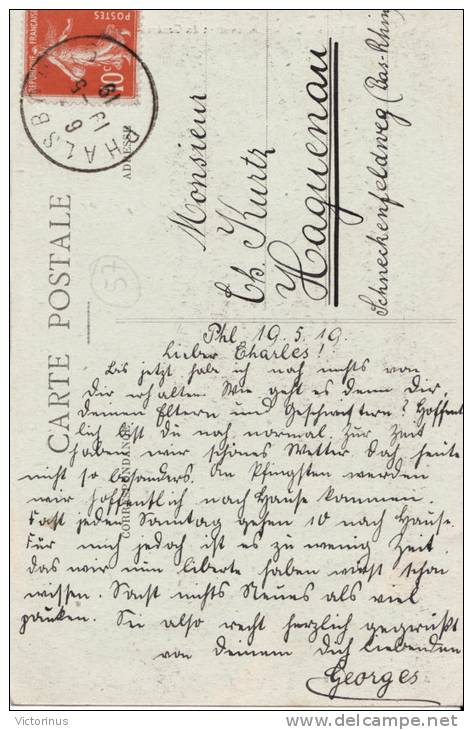 CARTE POSTALE
CORRESPONDANCE
ADRESSE
RÉPUBLIQUE FRANÇAISE
POSTES
10 c
PHALSB
19-5
19
57
Monsieur
Ch. Kurtz
Haguenau
Schneckenfeldweg (Bas-Rhin)
Phl 19.5.19.
Lieber Charles!
Bis jetzt habe ich noch nichts von
Dir erhalten. Wie geht es denn Dir,
Deinen Eltern und Geschwistern? Hoffent
lich bist du noch normal. Zur Zeit
haben wir schönes Wetter doch heute
nicht so besonders. An Pfingsten werden
wir hoffentlich nach Hause kommen.
Fast jeden Samstag gehen 10 nach Hause.
Für mich jedoch ist es zu wenig Zeit.
Das wir nun liberté haben wirst schon
wissen. Sonst nichts Neues als viel
pauken. Sei also recht herzlich gegrüßt
von deinem Dich liebenden
Georges
Victorinus